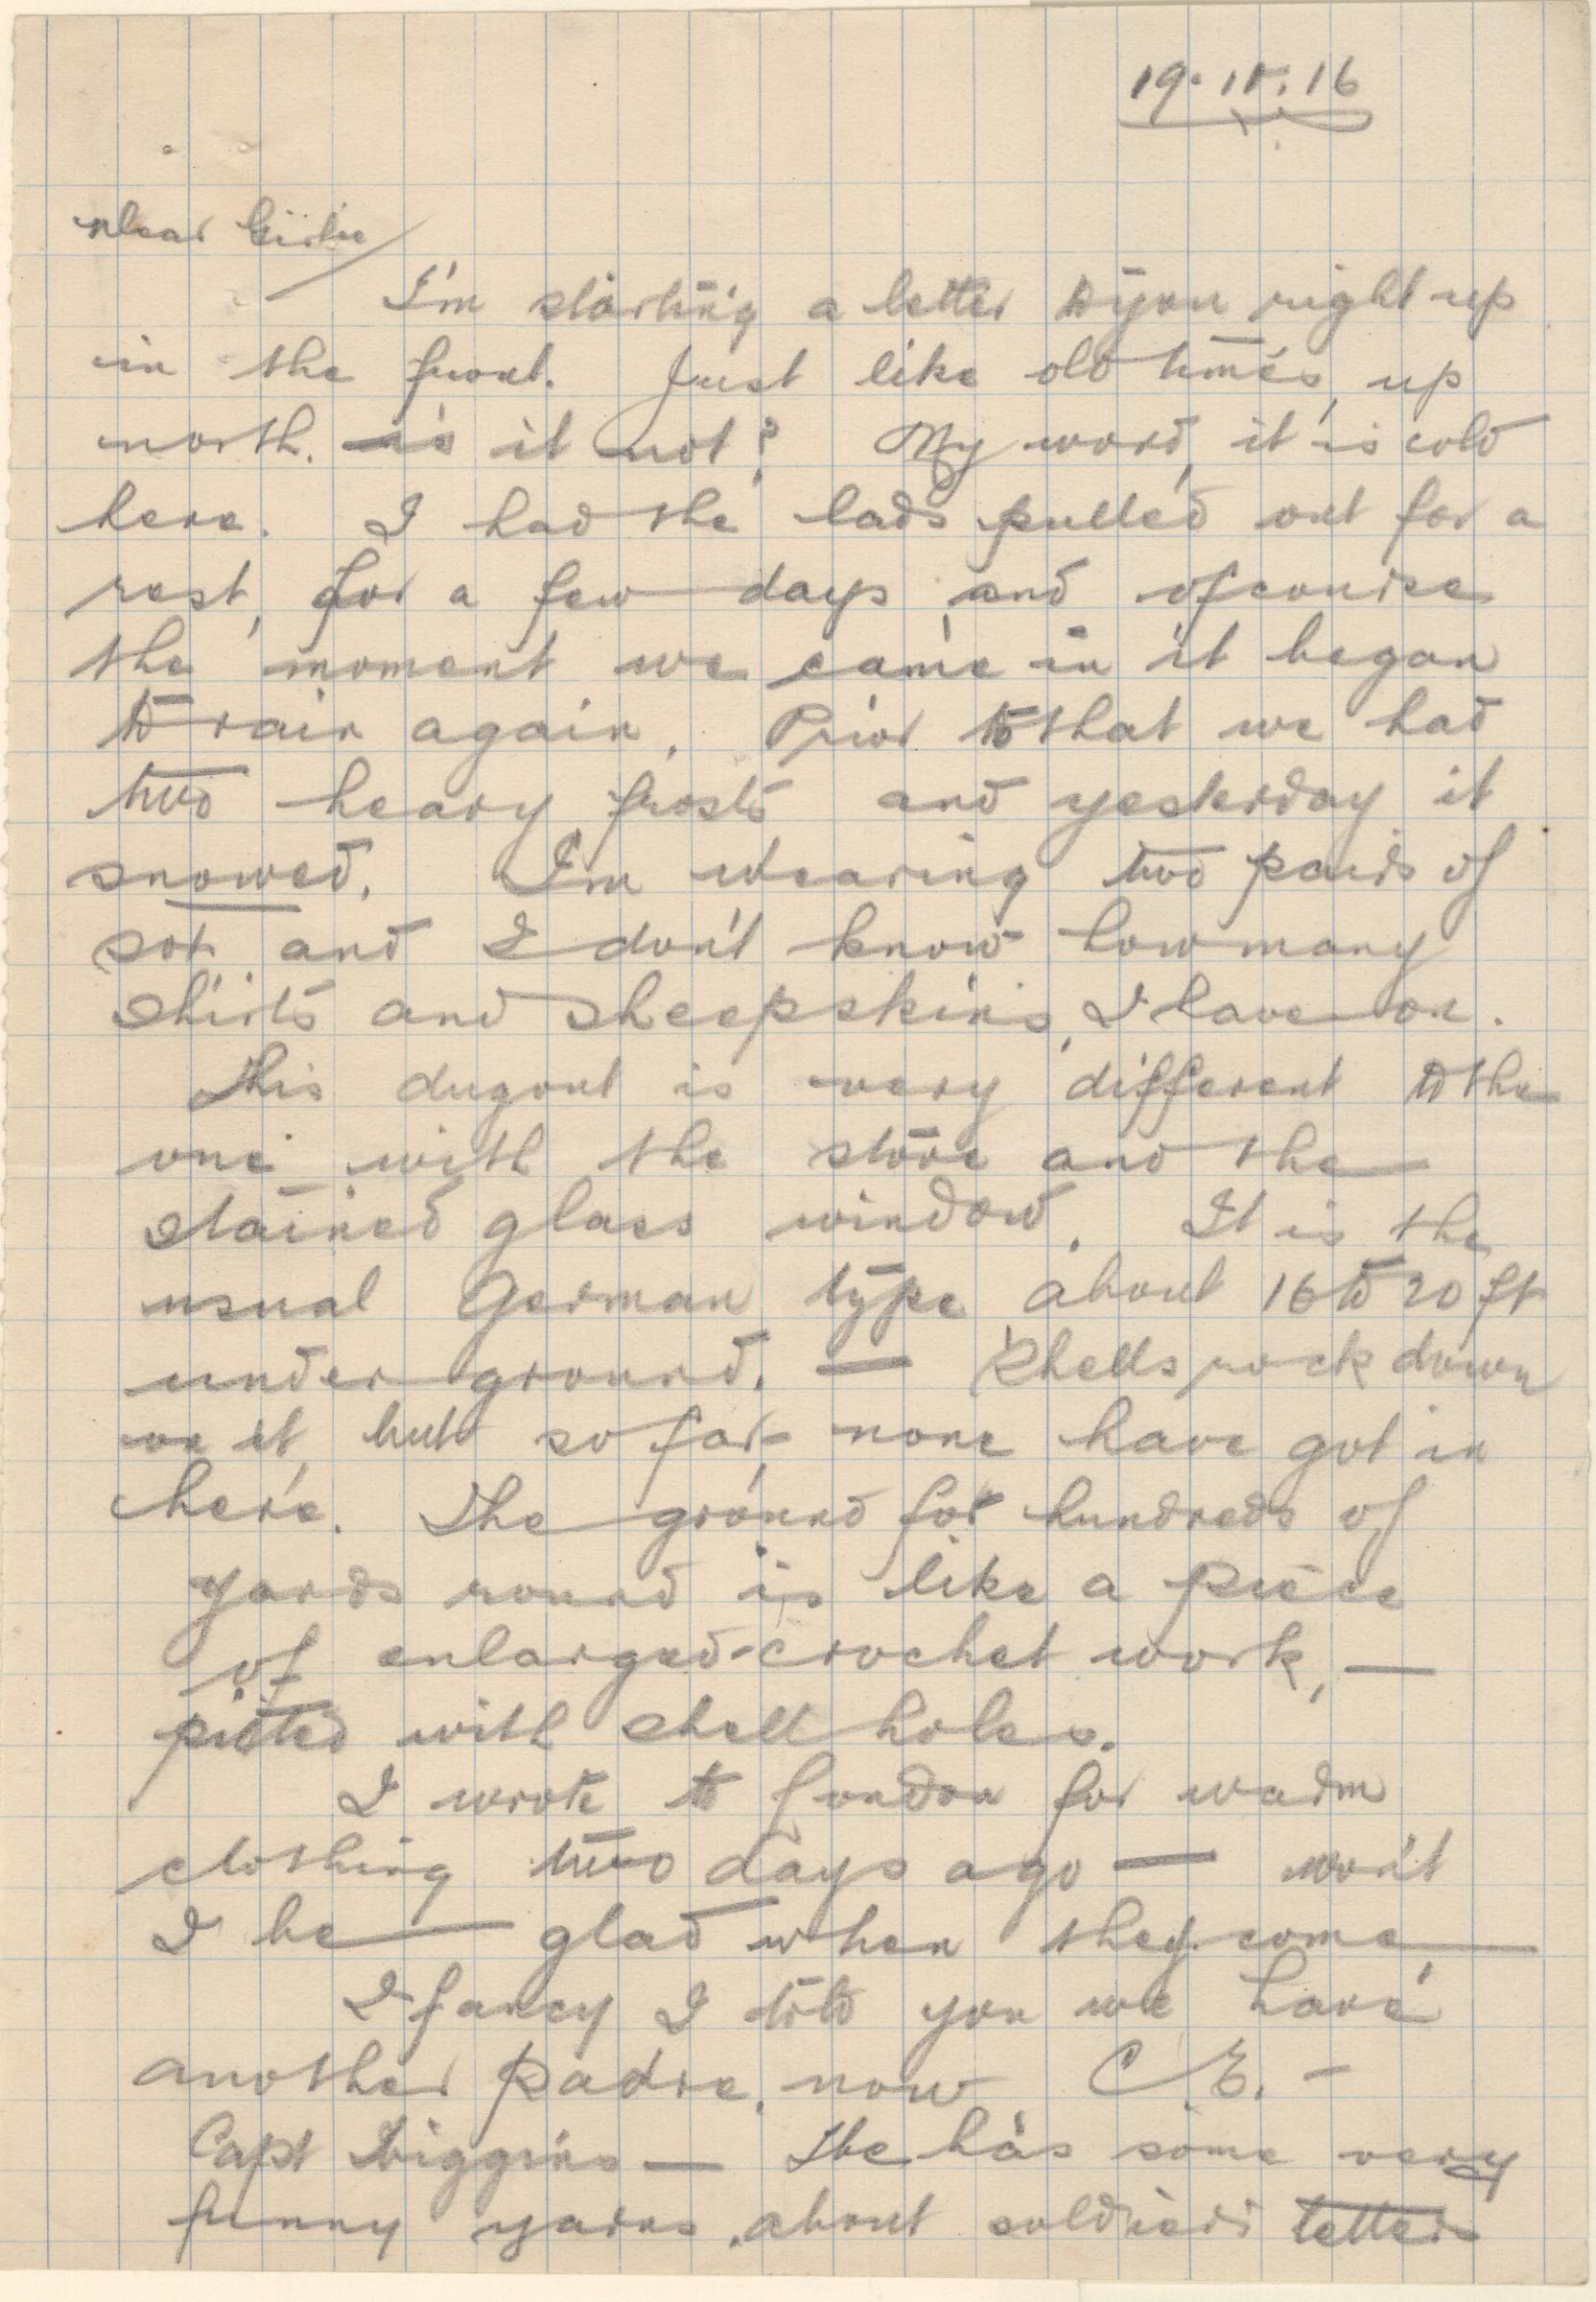 19.11.16
Dear Girlie
I'm starting a letter to you right up
in the front. Just like old times, up
north. is it not? My word, it is cold
here. I had the lads pulled out for a
rest, for a few days, and ofcourse
the moment we came in it began
to rain again. Prior to that we had
two heavy frosts and yesterday it
snowed. I'm wearing two pairs of
sox and I don't know how many
shirts and sheepskins, I have on.
This dugout is very different to the
one with the stove and the
stained glass window. It is the
usual German type about 16 to 20 ft
under ground. — Shells rock down
on it but so far, none have got in
here. The ground for hundreds of
yards round is like a piece
of enlarged crochet work, —
pitted with shell holes.
I wrote to London for warm
clothing two days ago — won't
I be glad when they come,
I fancy I told you we have
another padre, now C.E. -
Capt Wiggins — He has some very
funny yarns about soldiers letters